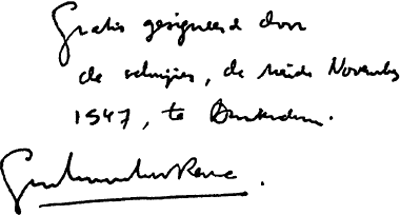 Gratis gesigneerd door
de schrijver, de derde November
1947, te Amsterdam.